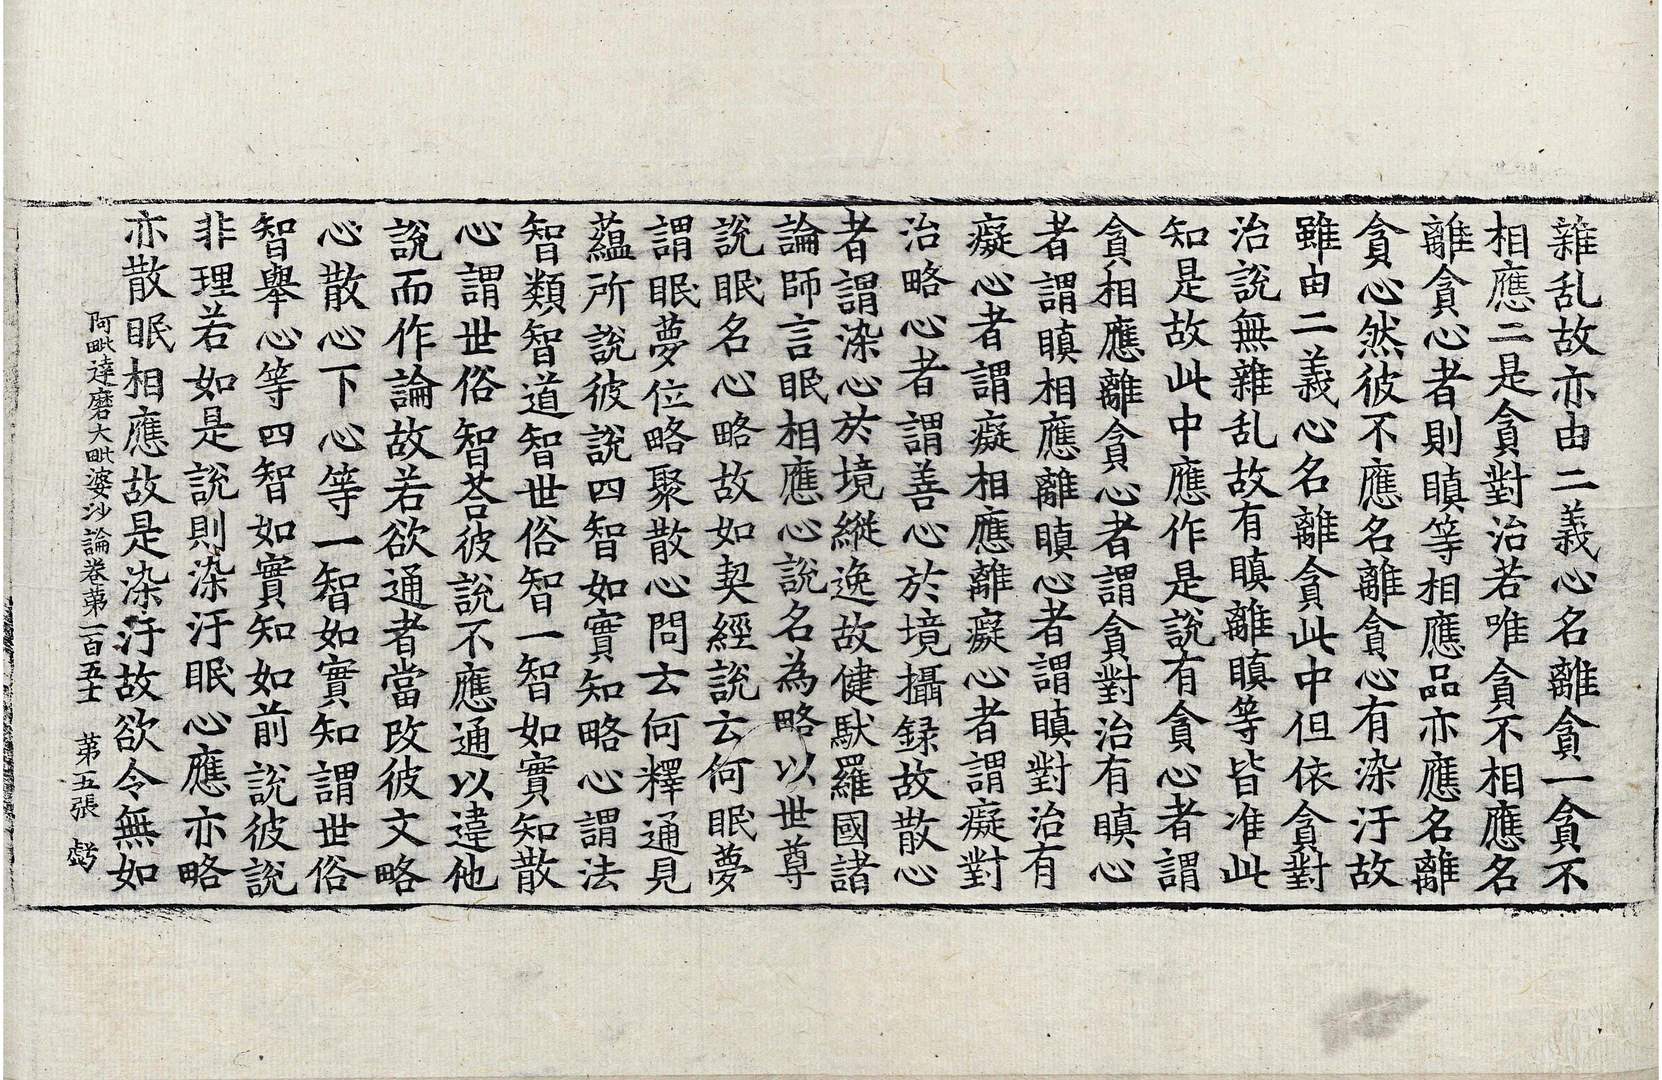 雜乱故亦由二義心名離貪一貪不
相應二是貪對治若唯貪不相應名
離貪心者則瞋等相應品亦應名離
貪心然彼不應名離貪心有染汙故
雖由二義心名離貪此中但依貪對
治說無雜乱故有瞋離瞋等皆准此
知是故此中應作是說有貪心者謂
貪相應離貪心者謂貪對治有瞋心
者謂瞋相應離瞋心者謂瞋對治有
癡心者謂癡相應離癡心者謂癡對
治略心者謂善心於境攝録故散心
者謂染心於境縱逸故健馱羅國諸
論師言眠相應心說名為略以世尊
說眠名心略故如契經說云何眠夢
謂眠夢位略聚散心問云何釋通見
蘊所說彼說四智如實知略心謂法
智類智道智世俗智一智如實知散
心謂世俗智荅彼說不應通以違他
說而作論故若欲通者當改彼文略
心散心下心等一智如實知謂世俗
智舉心等四智如實知如前說彼說
非理若如是說則染汙眠心應亦略
亦散眠相應故是染汙故欲令無如
阿毗達磨大毗婆沙論卷苐一百五十 苐五張